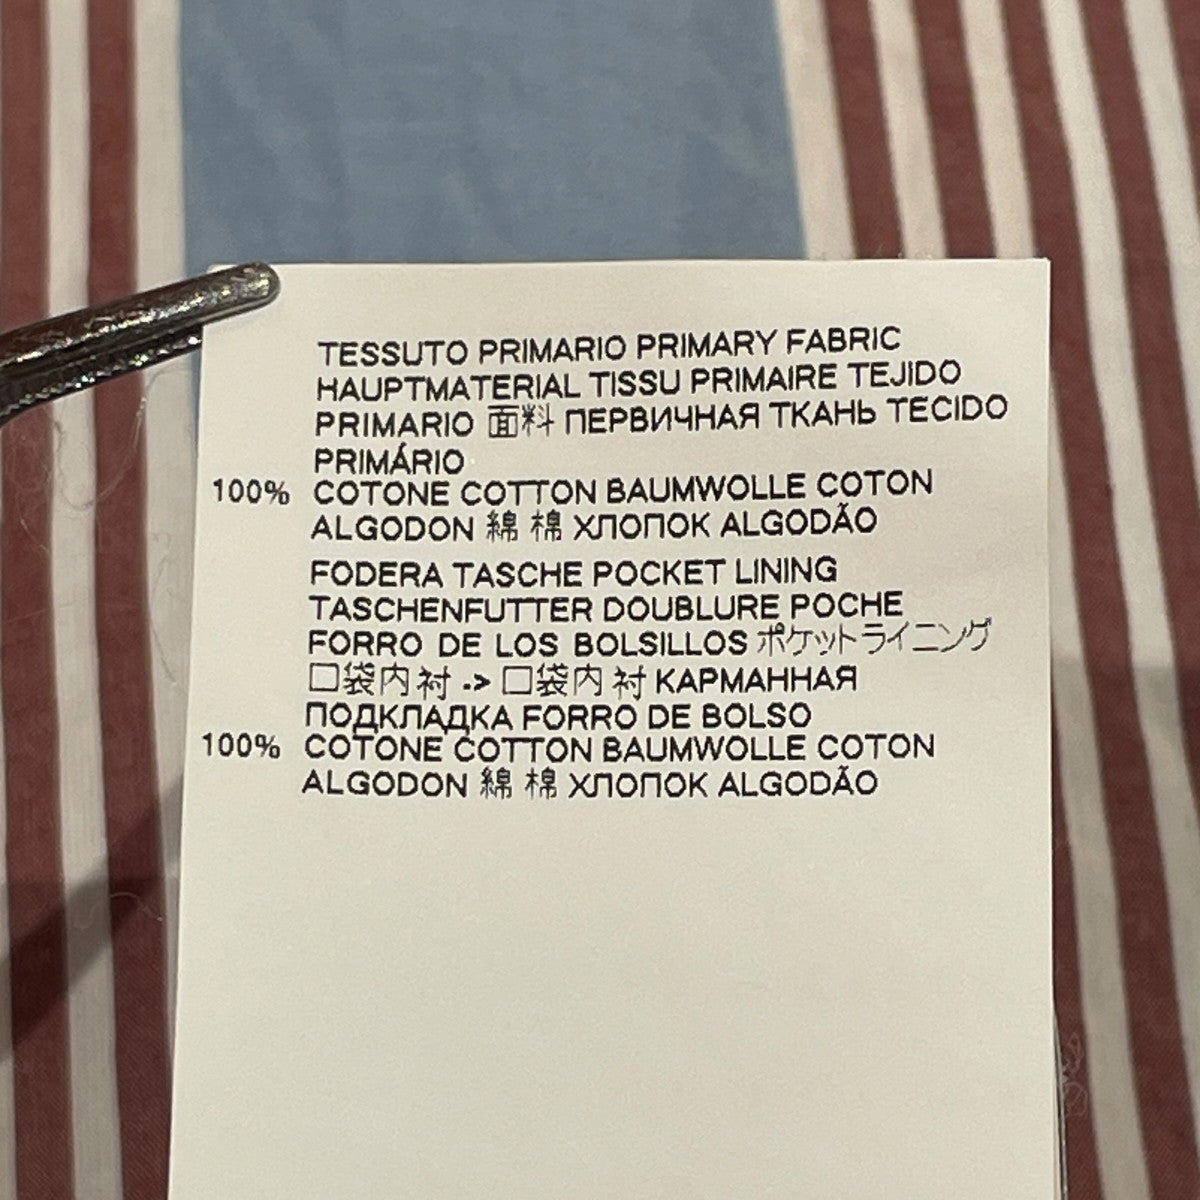 TESSUTO PRIMARIO PRIMARY FABRIC
HAUPTMATERIAL TISSU PRIMAIRE TEJIDO
PRIMARIO 面料 ПЕРВИЧНАЯ ТКАНЬ TECIDO
PRIMÁRIO
100% COTONE COTTON BAUMWOLLE COTON
ALGODON 綿 棉 ХЛОПОК ALGODÃO
FODERA TASCHE POCKET LINING
TASCHENFUTTER DOUBLURE POCHE
FORRO DE LOS BOLSILLOS ポケットライニング
口袋内衬 -> 口袋内衬 КАРМАННАЯ
ПОДКЛАДКА FORRO DE BOLSO
100% COTONE COTTON BAUMWOLLE COTON
ALGODON 綿 棉 ХЛОПОК ALGODÃO